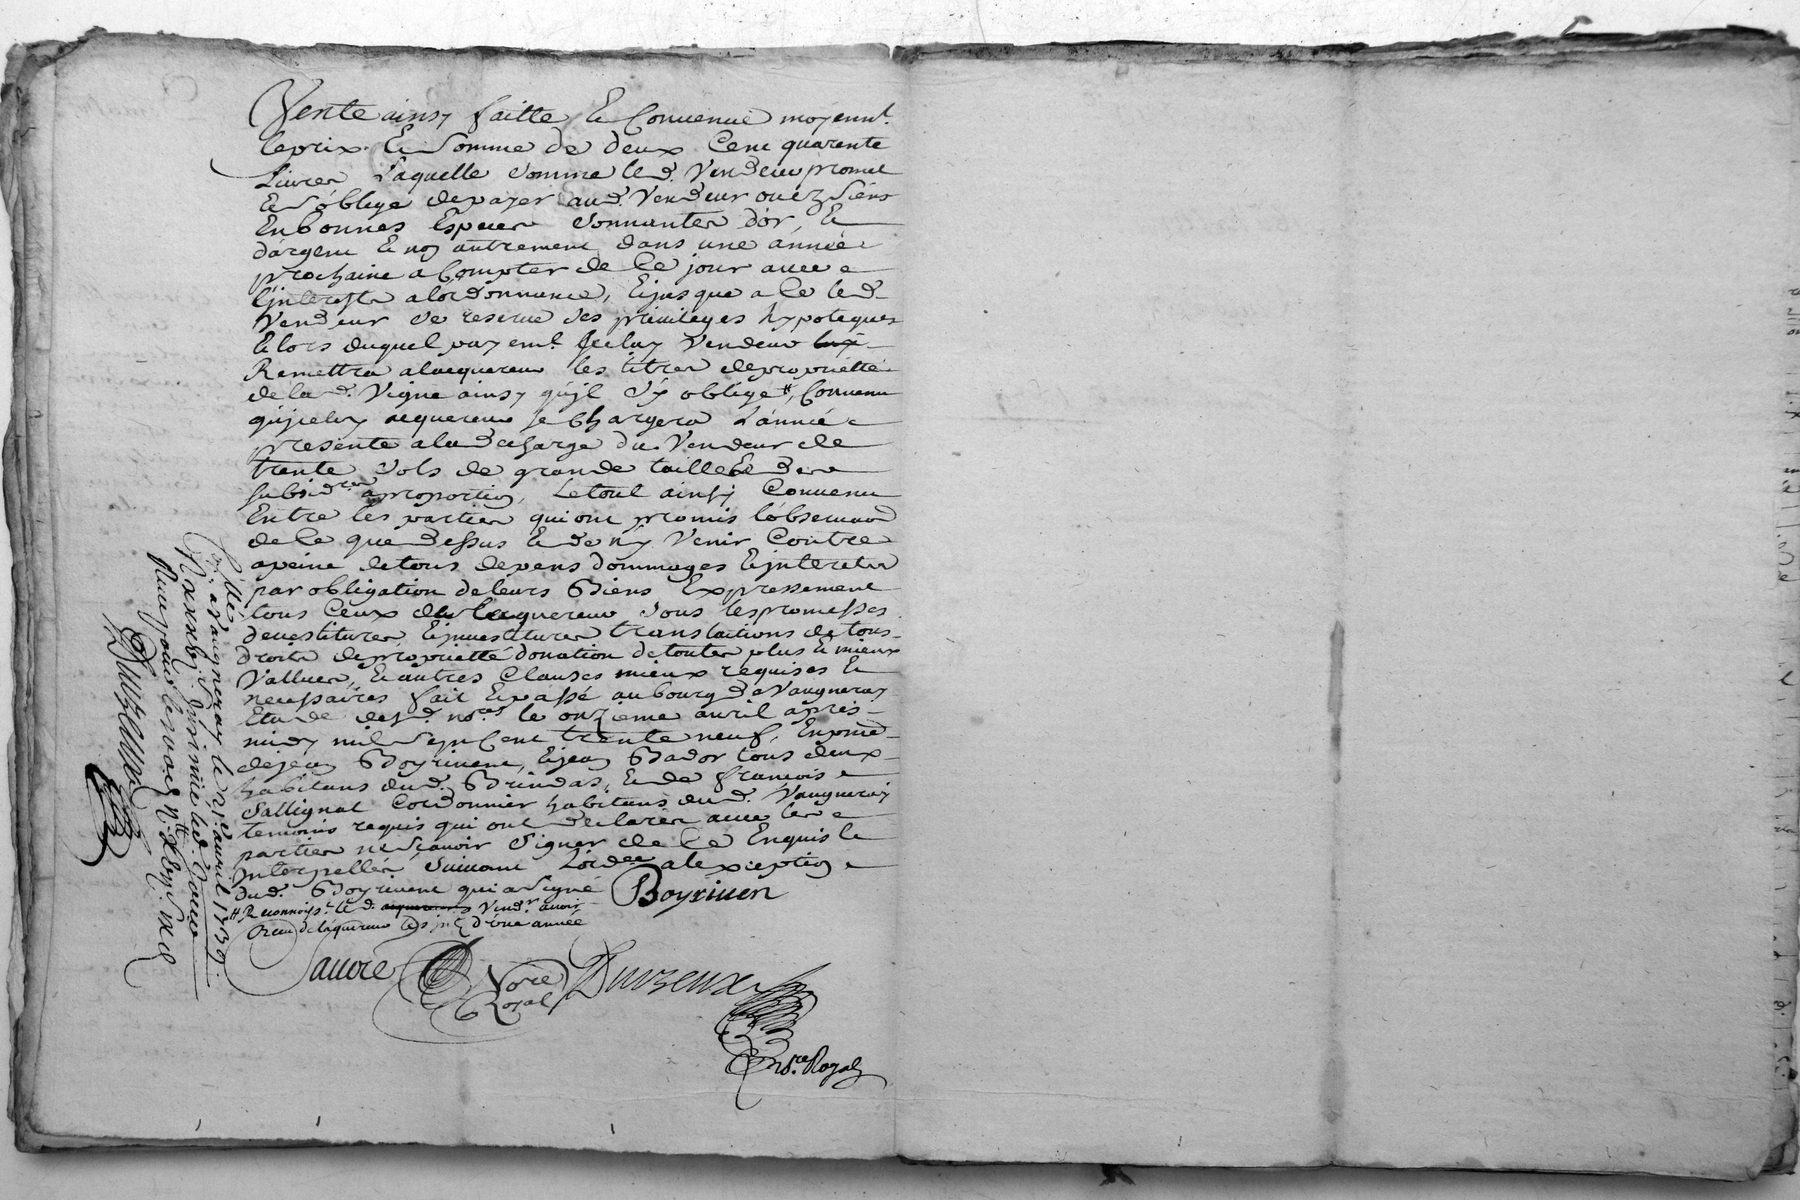 Vente ainsy faitte Et Convenue moyennt.
le prix Et Somme de deux Cent quarente
Livres Laquelle Somme led. Vendeur promet
Et S'oblige de payer aud. Vendeur ou ez Siens
En bonnes Especes Sonnantes d'or, Et
d'argent Et non autrement dans une année
prochaine a Compter de Ce jour avec
l'jnterests a lordonnance, Ejusque a Ce led.
Vendeur Se reserve Ses privileges hypoteques
Et lors duquel payemt. jceluy Vendeur luy
Remettra alacquereur les titres de propriettés
de lad. Vigne ainsy qu'jl S'y oblige #, Convenu
qu'jceluy acquereur se Chargera L'année
presente a la decharge du Vendeur de
trente Sols de grande taille Et des
subsidres a proportion, Le tout ainsy Convenu
Entre les parties qui ont promis l'observaon
de Ce que dessus Et de ny Venir Contre
a peine de tous depens dommages Et jnterets
par obligation de leurs Biens Expressement
tous Ceux de lacquereur Sous les promesses
devestitures, Ejnvestitures translactions de tous
droits de proprietté donation de toutes plus Et mieux
Vallues, Et autres Clauses mieux requises Et
necessaires fait Et passé au bourg de Vaugneray
Etude desd. nores le onzieme avril après
midy mil Sept Cent trente neuf, En pnce
de jean Boyrivent, Ejean Bador tous deux
habitans dud. Brindas, Et de francois
Sallignat Cordonnier habitans dud. Vaugneray
temoins requis qui ont declarer avec les
parties ne Sçavoir Signer de Ce Enquis Et
jnterpellés Suivant Lordce a lexception
dud. Boyrivent qui a Signé
Boyriven
# Reconnoist. le d. acquereur Vendr. avoir
Receu de laquereur d'une année
Favre Nore Royal
Duvzeux
nre. Royal
Collé
a Vaugneray le 21e. avril 1739.
Reçu